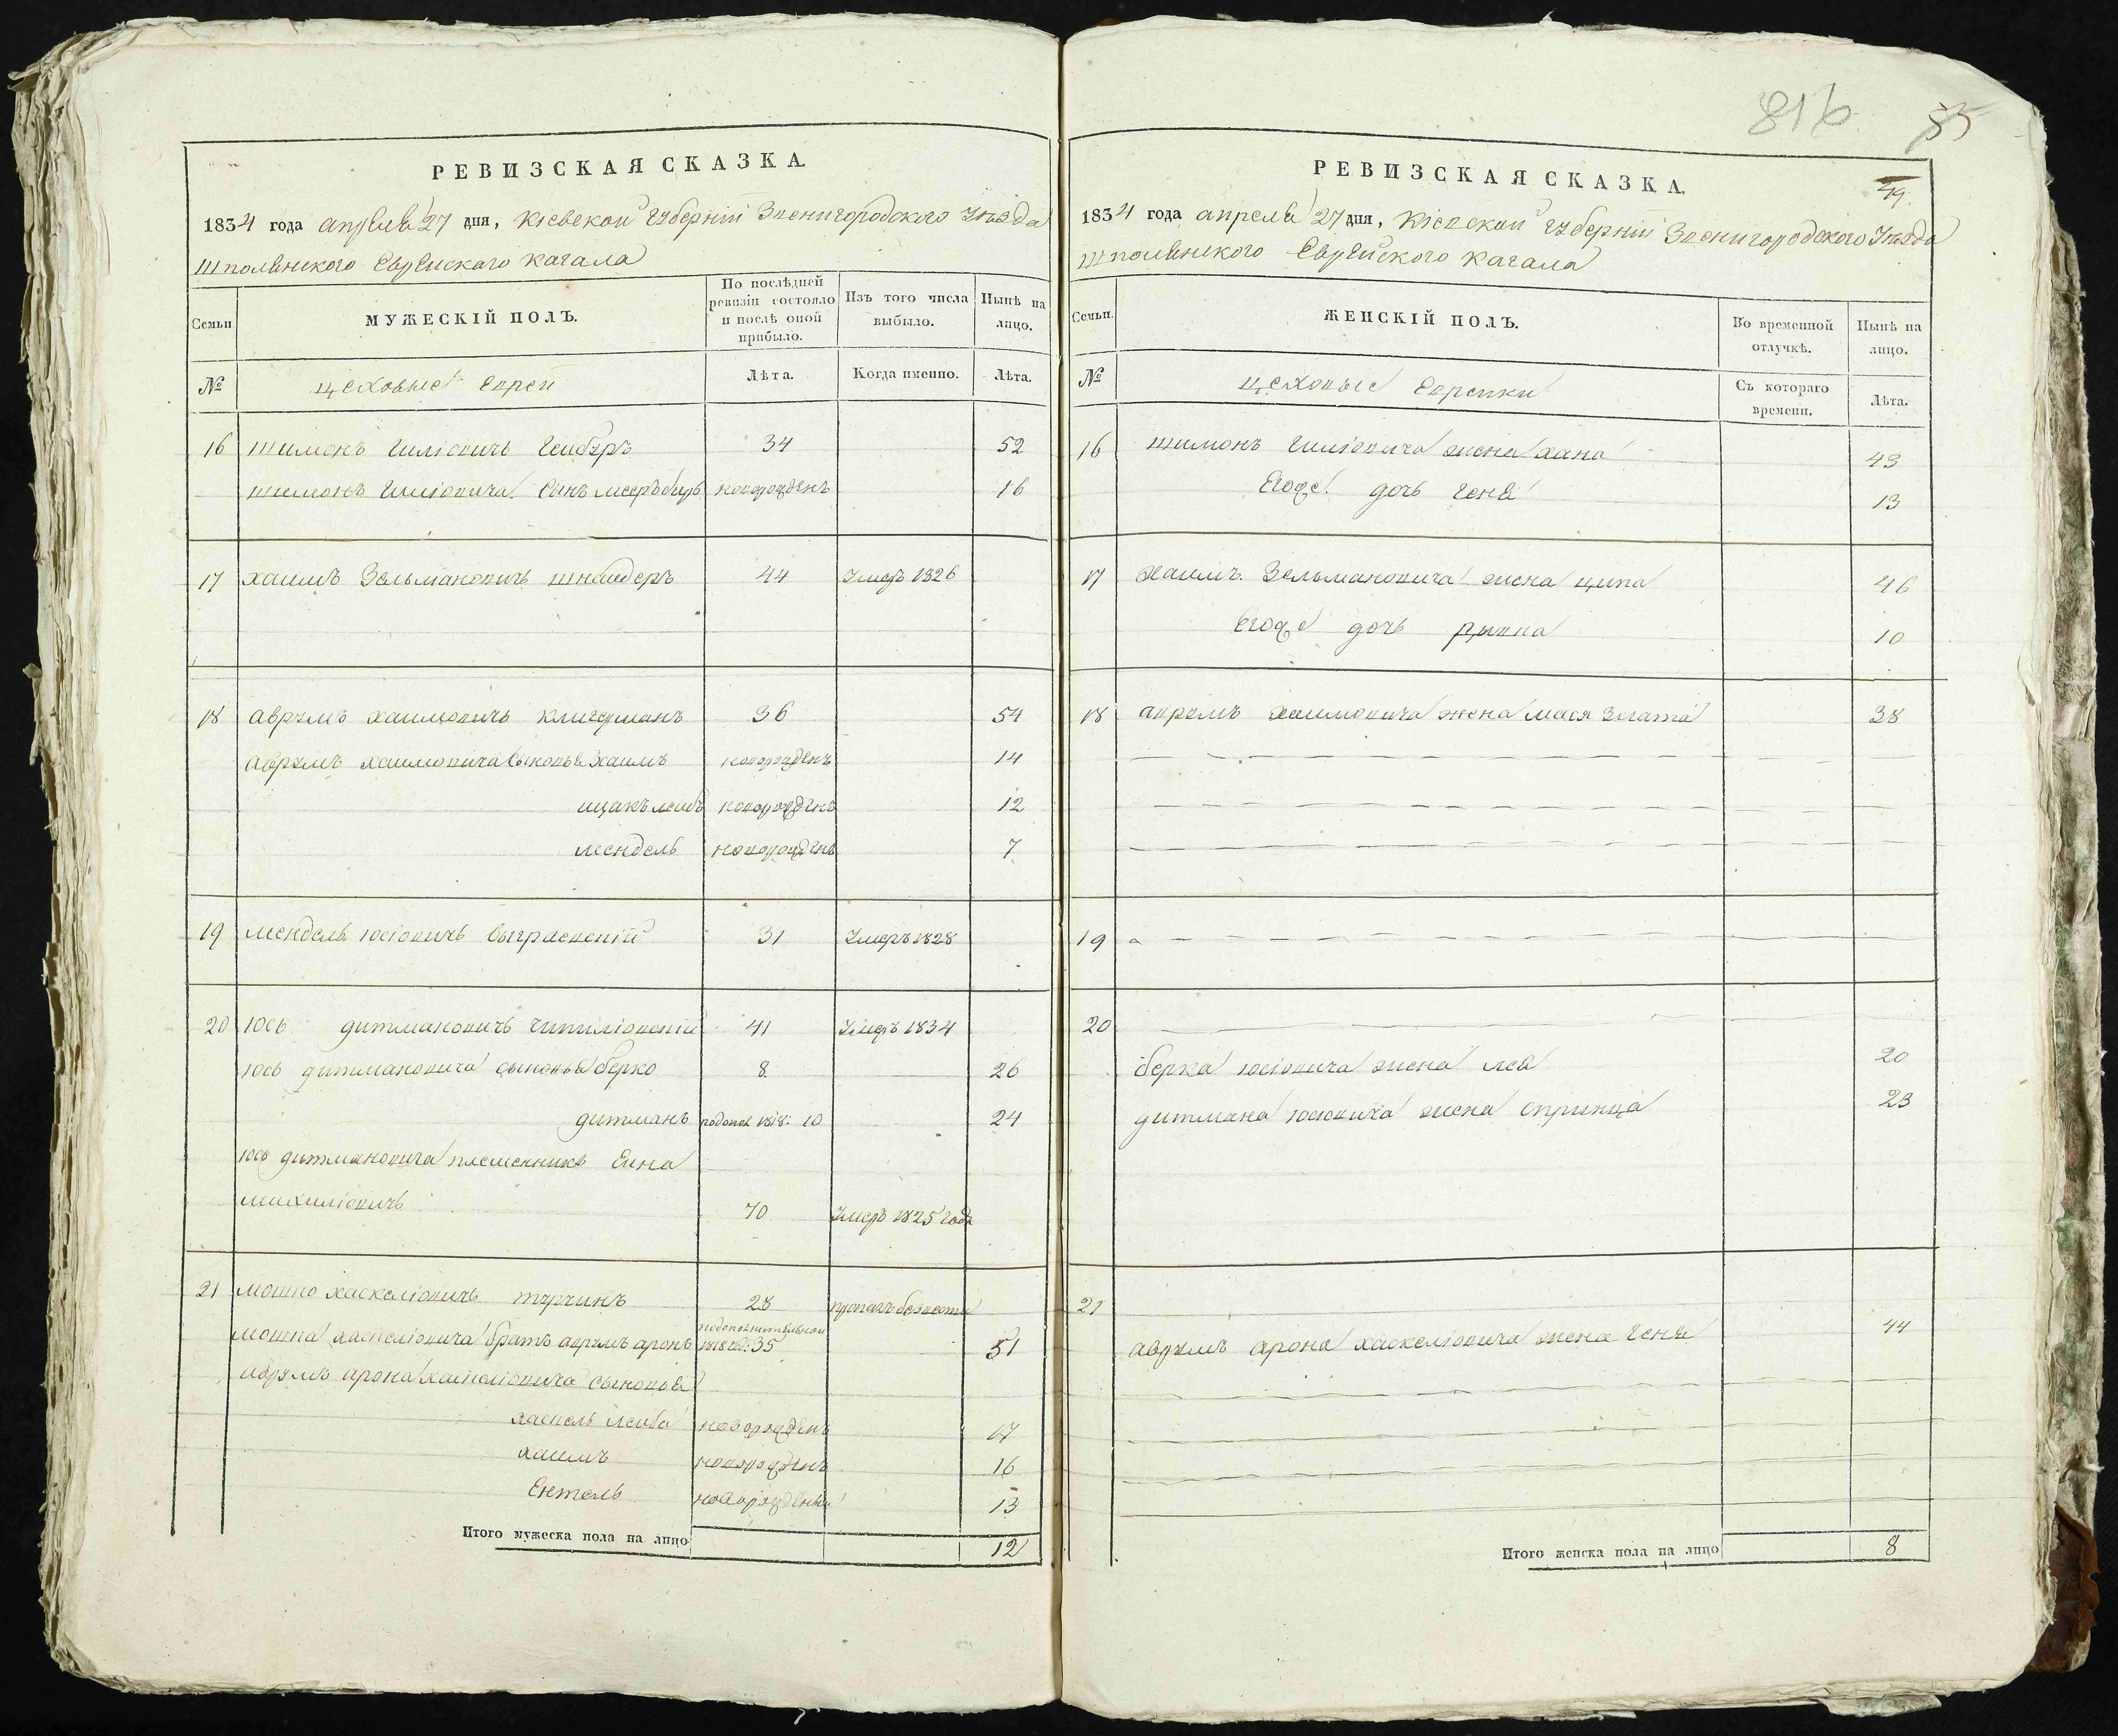 РЕВИЗСКАЯ СКАЗКА.
1834 года апреля 27 дня, Кіевской Губерніи Звенигородского Уезда
Шполянского Еврейскаго кагала
Семьи
МУЖЕСКІЙ ПОЛЪ.
По послѣдней ревизіи состояло и послѣ оной прибыло.
Изъ того числа выбыло.
Нынѣ на лицо.
№
цеховые Евреи
Лѣта.
Когда именно.
Лѣта.
16 шимонъ Гиліовичъ 34 52
шимонъ Гиліовича Сынъ новорожденъ 16
17 хаимъ Зельмановичъ шнайдеръ 44 Умеръ 1826
18 аврумъ хаимовичъ 36 54
аврумъ хаимовича Сыновья Хаимъ новорожденъ 14
ицакъ лейбъ новорожденъ 12
мендель новорожденъ 7
19 мендель юсіовичъ 31 Умеръ 1828
20 юсь дитмановичъ 41 Умеръ 1834
юсь дитмановича сыновья берко 8 26
дитманъ 1818: 10 24
юсь дитмановича племенникъ
михиліовичъ 70 Умеръ 1825 года
21 мошко хаскеліовичъ турчинъ 28 пропалъ безвести
мошка хаскеліовича братъ аврумъ аронъ подополнительной 1818 год: 35 51
аврумъ арона хаскеліовича сыновья
хаскель лейба новорожденъ 17
хаимъ новорожденъ 16
Ентель новорожденный 13
Итого мужеска пола на лицо 12
816
85
49.
РЕВИЗСКАЯ СКАЗКА.
1834 года апреля 27 дня, Кіевской Губерніи Звенигородского Уезда
Шполянского Еврейского кагала
Семьи.
ЖЕНСКІЙ ПОЛЪ.
Во временной отлучкѣ.
Нынѣ на лицо.
№
цеховые Еврейки
Съ котораго времени.
Лѣта.
16 шимонъ Гиліовича жена хана 43
Егоже дочь геня 13
17 Хаимъ Зельмановича жена ципа 46
Егоже дочь 10
18 аврумъ хаимовича жена мася злата 38
19
20
берка юсіовича жена лея 20
дитмана юсіовича жена спринца 23
21
аврумъ арона хаскеліовича жена геня 44
Итого женска пола на лицо 8